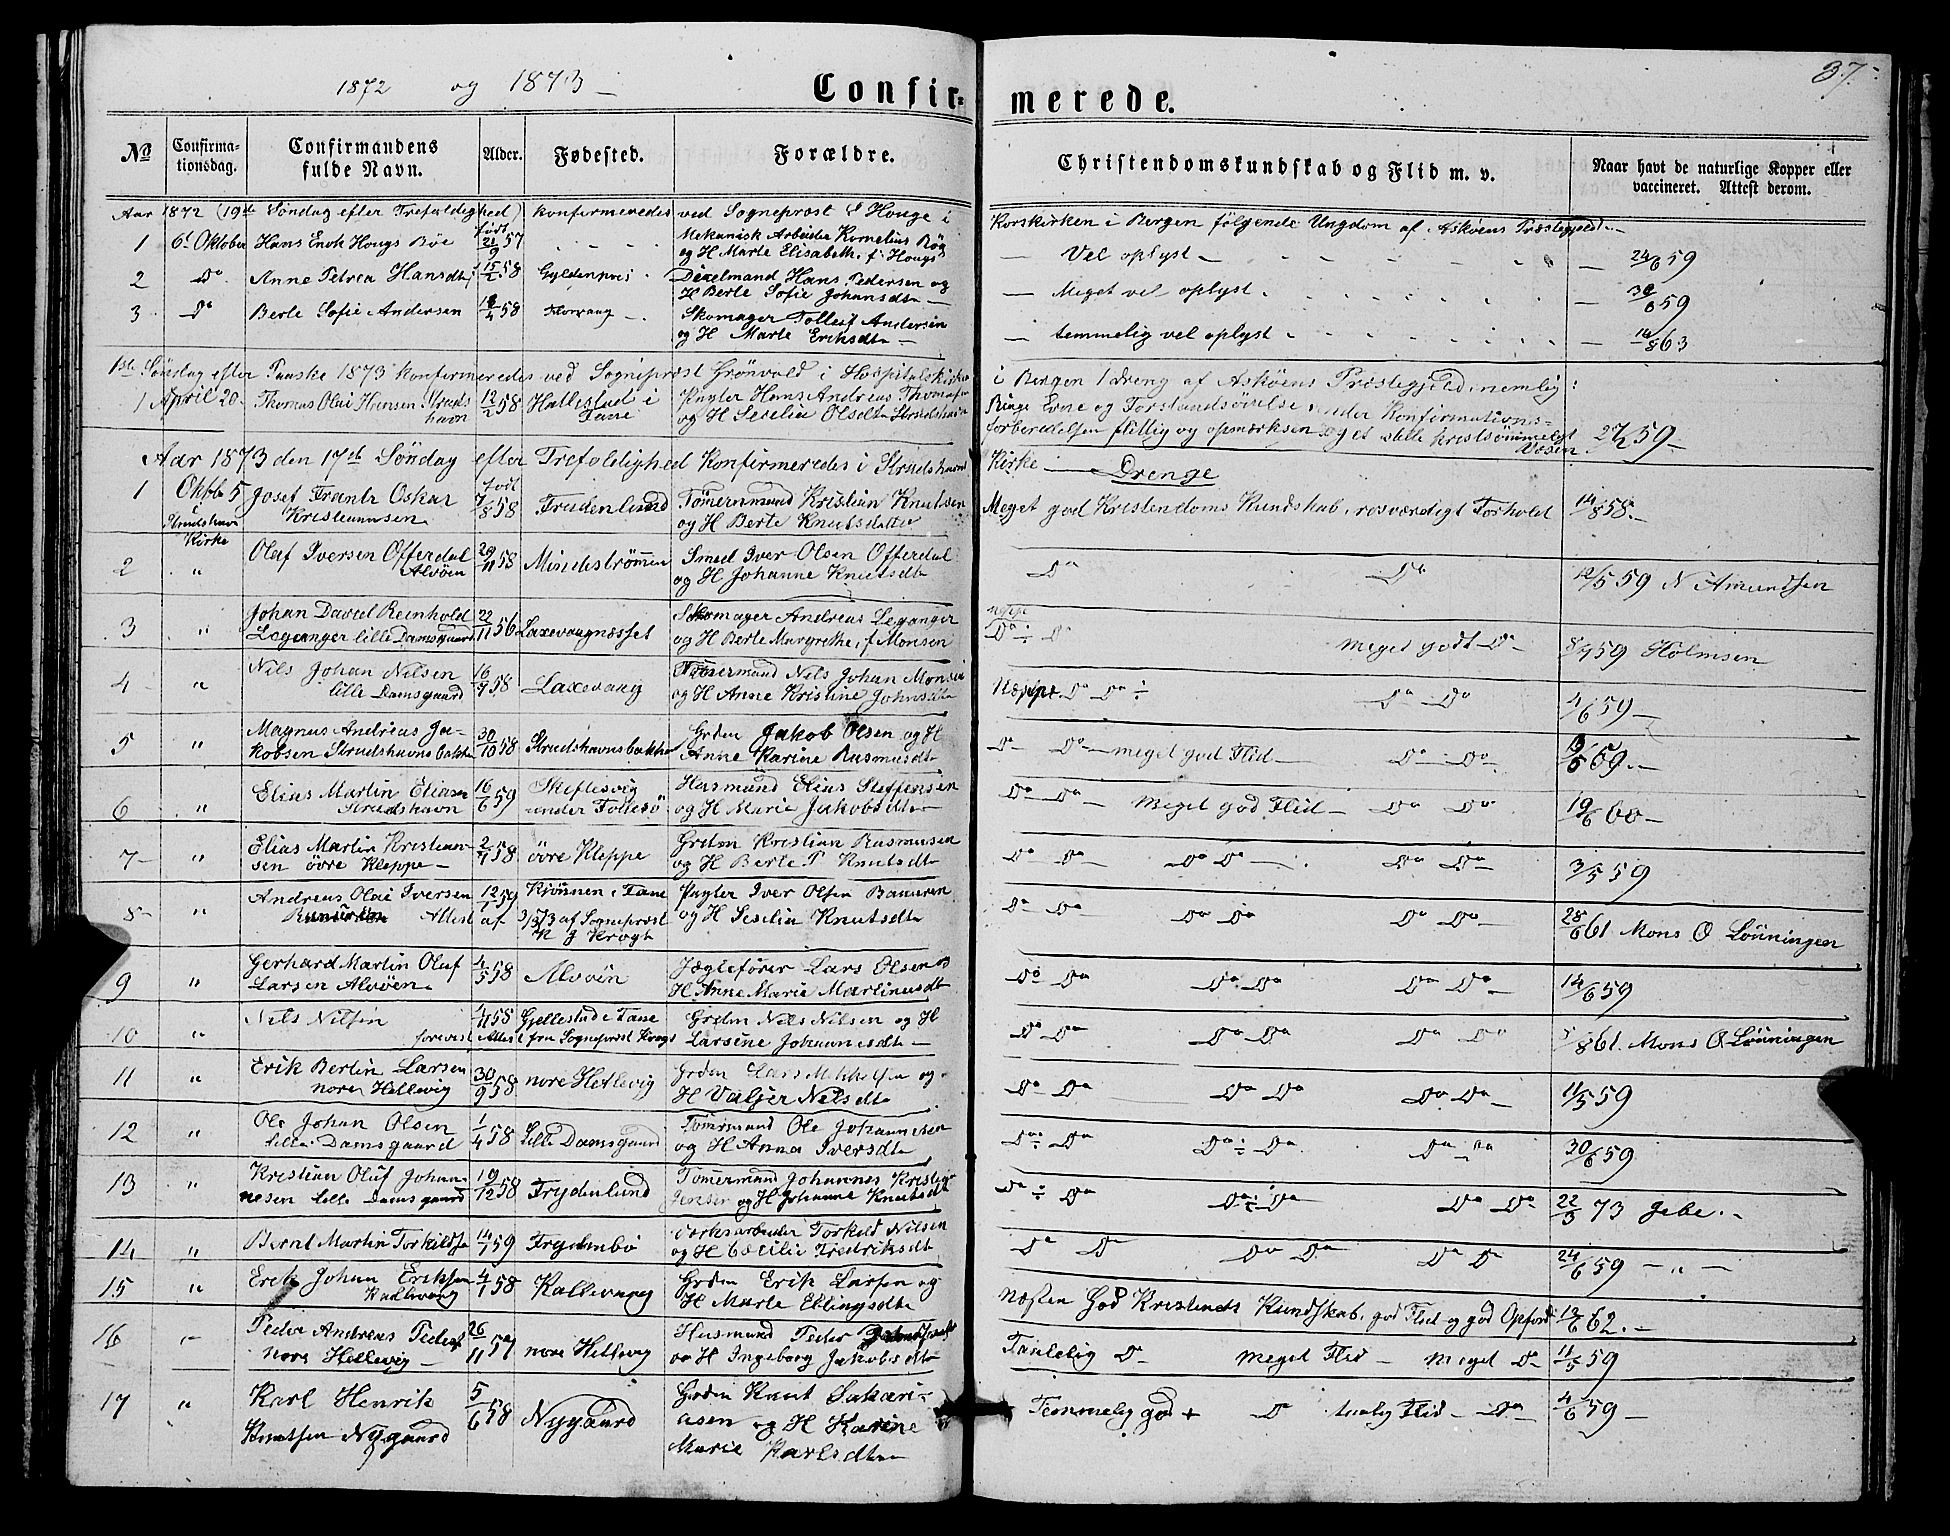 1872 og 1873 —
37
Confirmerede.
№
Confirmationsdag.
Confirmandens fulde Navn.
Alder.
Fødested.
Forældre.
Christendomskundskab og Flid m. v.
Naar havt de naturlige Kopper eller vaccineret. Attest derom.
Aar 1872 (19de Søndag efter Trefoldighed) konfirmeredes ved Sogneprest Houge i Korskirken i Bergen følgende Ungdom af Askøens Præstegjeld
1 6t Oktober Hans Enok Hougs Böe født 21/9 57 Mekanisk Arbeider Kornelius Bög
og H Marte Elisabeth f Hougs — Vel oplyst — 24/6 59
2 Do Anne Petrea Hansdtr 15/1 58 Gyldenpris Hans Pedersen og
H Berte Sofie Johansdtr — Meget vel oplyst 59
3 Do Berte Sofie Andersen 58 Skomager Tollest Andersen
og H Marte Eriksdtr — temmelig vel oplyst — 14/8 63
1ste Søndag efter Paaske 1873 konfirmeredes ved Sogneprest Grönvold i Hospitalskirken
i Bergen 1 dreng af Askøens Præstegjeld, nemlig:
1 April 20 Thomas Olai Hansen Strudshavn 12/2 58 Hallestad i Fane Pagter Hans Andreas Thomasen
og H Seselia Olsdtr Strudshavn
Ringe Evne og Forstandsövelse under Konfirmations-
forberedelsen flittig og opmærksom og et stille kristsömmeligt Væsen 59
Aar 1873 den 17de Søndag efter Trefoldighed Konfirmeredes i Strudshavn Kirke — Drenge
1 Oktb 5 i Strudshavn Kirke Josef Frants Oskar Kristiansen født 7/8 58 Frudenlund Tömermand Kristian Knutsen
og H Berte Knutsdatter Meget god Kristendoms Kundskab, rosværdigt Forhold 14/8 58
2 " Olaf Iversen Offerdal Alvöen 29/11 58 Mindeströmmen Smed Iver Olsen Offerdal
og H Johanne Knutsdtr Do Do 12/5 59 N Amundsen
3 " Johan David Reinhold
Leganger lille Damsgaard 22/11 56 Laxevaagnæsset Skomager Andreas Leganger
og H Berte Margrethe, f Monsen Do Do meget godt Do 8/7 59 Holmsen
4 " Nils Johan Nilsen
lille Damsgaard 16/9 58 Laxevaag Tömermand Nils Johan Monsen
og H Anne Kristine Johnsdtr Neppe Do Do Do Do 4/6 59
5 " Magnus Andreas Ja-
kobsen Strudshavnsbakke 30/10 58 Strudshavnsbakke Grdm Jakob Olsen og H
Anne Karine Rasmusdtr Do Do meget god Flid Do Do 59
6 " Elias Martin Eliasen
Strudshavn 16/6 59 Skiftesvig
under Follesö Husmand Elias Steffensen
og H Marie Jakobsdtr Do Do meget god Flid Do Do 19/6 60
7 " Elias Martin Kristian-
sen övre Kleppe 2/7 58 övre Kleppe Grdm Kristian Rasmusen
og H Berte P Knutsdtr Do Do Do Do Do Do 3/5 59
8 " Andreas Olai Iversen
Attest 12/1 59 af Kjönnen i Fane
3/3 73 af Sogneprest
K J Krogh Pagter Iver Olsen
og H Seselia Knutsdtr Do Do Do Do Do Do 28/6 61 Mons O Lönningen
9 " Gerhard Martin Oluf
Larsen Alvöen 4/5 58 Alvöen Jægtefører Lars Olsen og
H Anne Marie Martinusdtr Do Do Do Do Do Do 14/6 59
10 " Nils Nilsen 4/11 58 Gjellestad i Fane
forevist Attest fra Sogneprest Krogh Grdm Nils Nilsen og H
Larsine Johannesdtr Do Do Do Do Do Do 61 Mons O Lönningen
11 " Erik Bertin Larsen
nore Hetlevig 30/9 58 nore Hetlevig Grdm Lars Mikkelsen og
H Valjer Nilsdtr Do Do Do Do Do Do 11/5 59
12 " Ole Johan Olsen
lille Damsgaard 1/4 58 Lille Damsgaard Tömermand Ole Johannesen
og H Anna Iversdtr Do Do Do Do Do Do 30/6 59
13 " Kristian Oluf Johan-
nesen lille Damsgaard 19/12 58 Frydenlund Tömermand Johannes Kristian
Jensen og H Johanne Knutsdtr Do Do Do Do Do Do 22/3 73 Jebe
14 " Bernt Martin Torkildsen 14/1 59 Frydenbö Verksarbeider Torkild Nilsen
og H Cecilie Fredriksdtr Do Do Do Do Do Do 24/6 59 — " —
15 " Erik Johan Eriksen
Kallevaag 4/1 58 Kallevaag Grdm Erik Larsen og
H Marte Ellingsdtr Næsten God Kristends Kundskab, god Flid og god Opförsel 62
16 " Peder Andreas Peders
nore Hetlevig 26/11 57 nore Hetlevig Husmand Peder
og H Ingeborg Jakobsdtr Do Meget Flid — Meget Do 11/5 59
17 " Karl Henrik
Knutsen Nygaard 5/6 58 Nygaard Grdm Knut Sakari-
asen og H Karine
Marie Karlsdtr Temmelig god Do Flid — Do 4/6 59